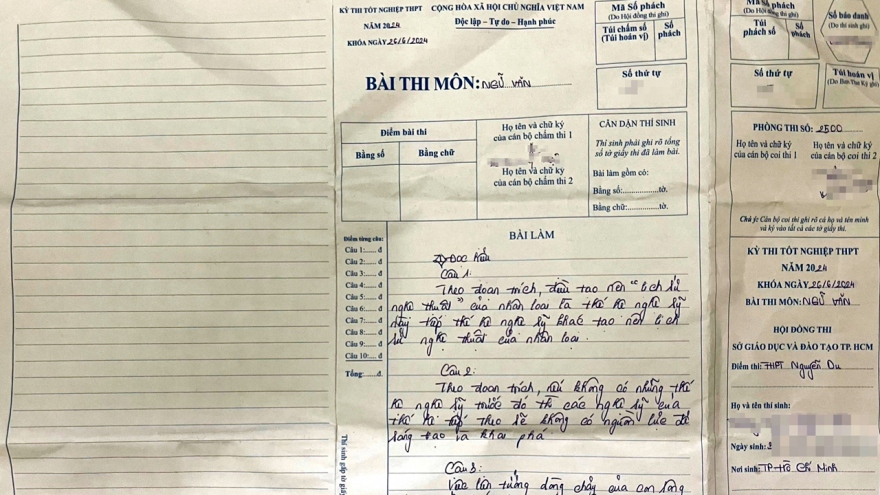 KỲ THI TỐT NGHIỆP THPT
NĂM 2024
KHÓA NGÀY 26/6/2024
CỘNG HÒA XÃ HỘI CHỦ NGHĨA VIỆT NAM
Độc lập – Tự do – Hạnh phúc
BÀI THI MÔN: NGỮ VĂN
Mã Số phách
(Do Hội đồng thi ghi)
Túi chấm số
(Túi hoán vị)
Số
phách
Số thứ tự
Điểm bài thi
Bằng số
Bằng chữ
Họ tên và chữ ký
của cán bộ chấm thi 1
Họ tên và chữ ký
của cán bộ chấm thi 2
CĂN DẶN THÍ SINH
Thí sinh phải ghi rõ tổng
số tờ giấy thi đã làm bài.
Bài làm gồm có:
Bằng số:...............tờ.
Bằng chữ:.............tờ.
Điểm từng câu:
Câu 1:..... đ
Câu 2:..... đ
Câu 3:..... đ
Câu 4:..... đ
Câu 5:..... đ
Câu 6:..... đ
Câu 7:..... đ
Câu 8:..... đ
Câu 9:..... đ
Câu 10:.... đ
Tổng:.....đ
BÀI LÀM
I) Đọc hiểu
Câu 1:
Theo đoạn trích, điều tạo nên "lịch sử
nghệ thuật" của nhân loại là thế hệ nghệ sỹ
này tiếp thế hệ nghệ sỹ khác tạo nên lịch
sử nghệ thuật của nhân loại.
Câu 2:
Theo đoạn trích, nếu không có những thế
hệ nghệ sỹ trước đó thì các nghệ sỹ của
thế hệ tiếp theo sẽ không có nguồn lực để
sáng tạo và khai phá
Câu 3:
dòng chảy của con sông
Mã Số phách
(Do Hội đồng thi ghi)
Túi
phách số
Số
phách
Số báo danh
(Do thí sinh ghi)
Số thứ tự
Túi hoán vị
(Do Ban Thư Ký ghi)
PHÒNG THI SỐ: 2500
Họ tên và chữ ký
của cán bộ coi thi 1
Họ tên và chữ ký
của cán bộ coi thi 2
Chú ý: Cán bộ coi thi ghi rõ cả họ và tên mình
và ký vào tất cả các tờ giấy thi.
KỲ THI TỐT NGHIỆP THPT
NĂM 2024
KHÓA NGÀY 26/6/2024
BÀI THI MÔN: NGỮ VĂN
HỘI ĐỒNG THI
SỞ GIÁO DỤC VÀ ĐÀO TẠO TP. HCM
Điểm thi: THPT Nguyễn Du
Họ và tên thí sinh:
Ngày sinh: 2
Nơi sinh: TP Hồ Chí Minh